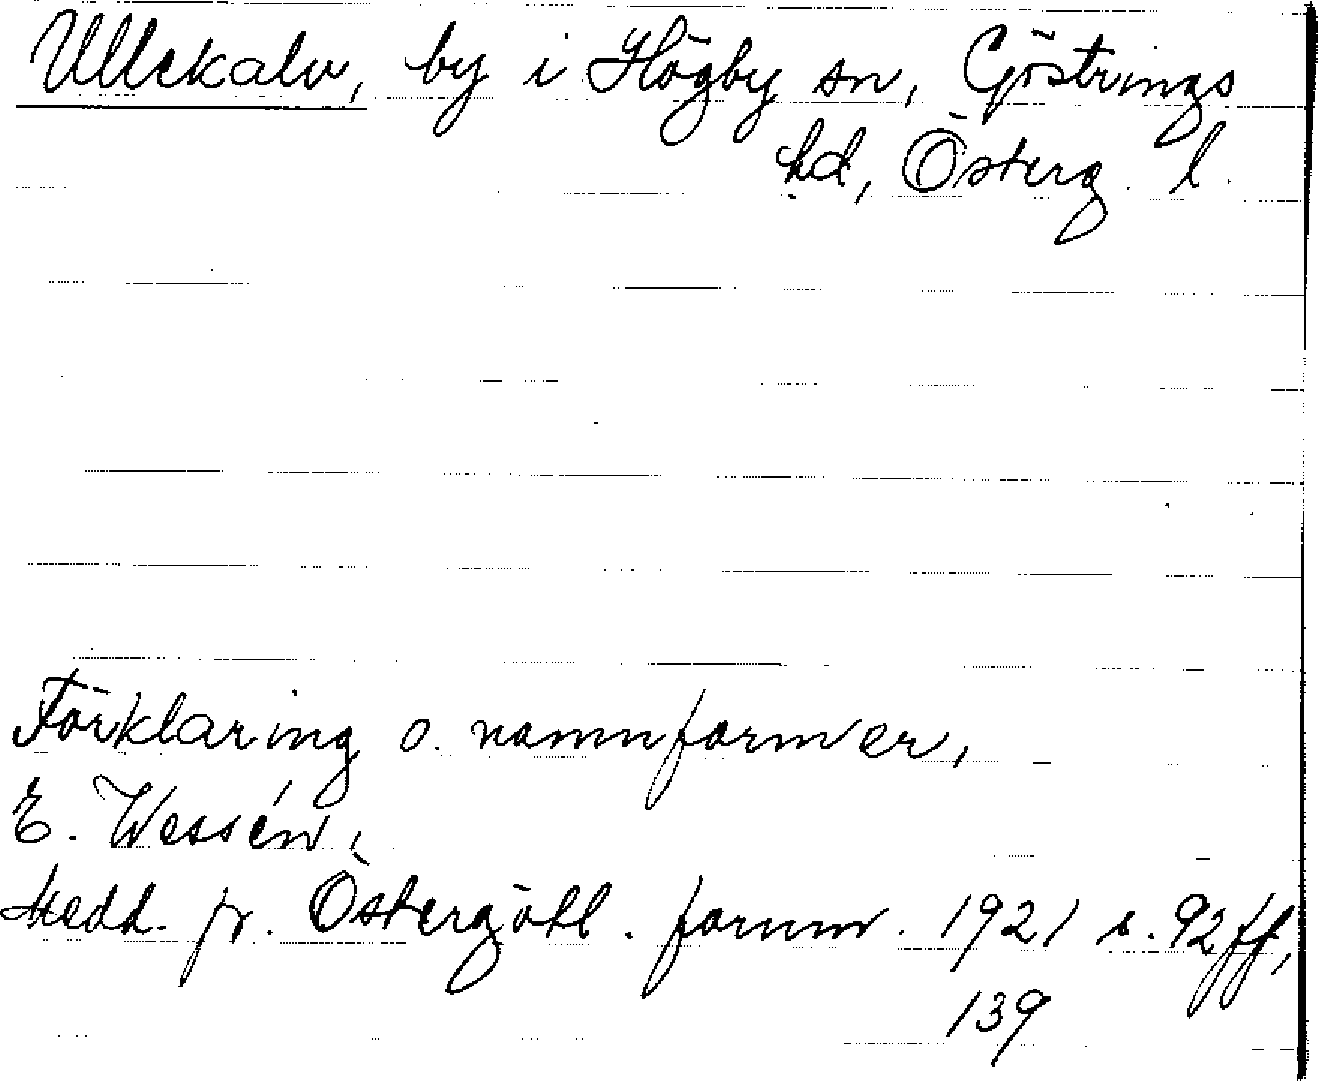 Ullekalv, by i Högby sn, Göstrings
hd, Österg. l.
Förklaring o. namnformer,
E. Wessén,
Medd. fr. Östergötl. fornm. 1921 s. 92ff,
139